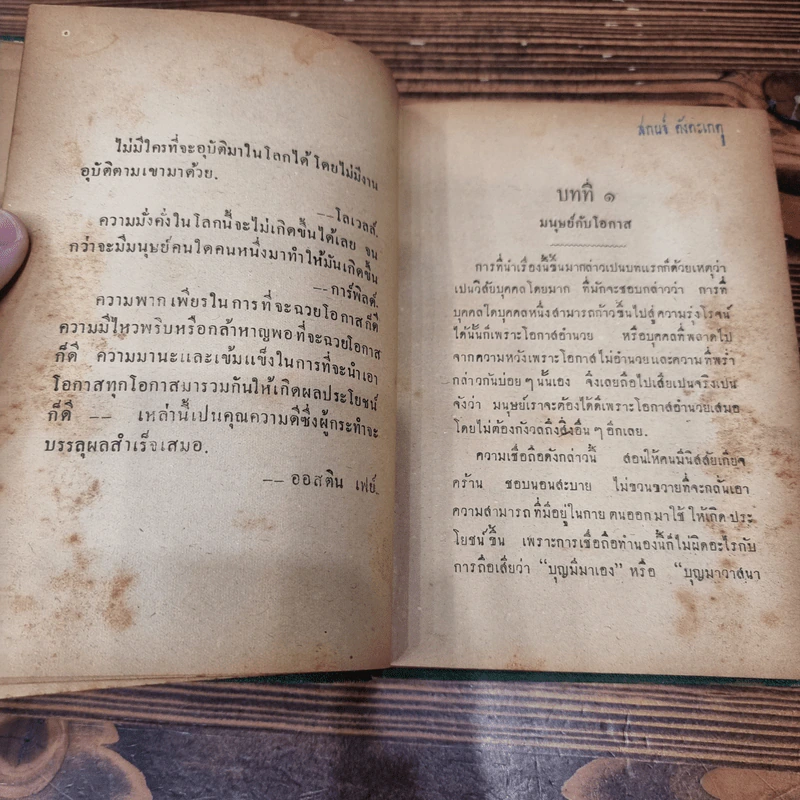 ไม่มีใครที่จะอุบัติมาในโลกได้ โดยไม่มีงาน
อุบัติตามเขามาด้วย.
——โลเวลล์.
ความมั่งคั่งในโลกนี้จะไม่เกิดขึ้นได้เลย จน
กว่าจะมีมนุษย์คนใดคนหนึ่งมาทำให้มันเกิดขึ้น
——การ์ฟิลด์.
ความพากเพียรในการที่จะฉวยโอกาสก็ดี
ความมีไหวพริบหรือกล้าหาญพอที่จะฉวยโอกาส
ก็ดี ความมานะและเข้มแข็งในการที่จะนำเอา
โอกาสทุกโอกาสมารวมกันให้เกิดผลประโยชน์
ก็ดี —— เหล่านี้เป็นคุณความดีซึ่งผู้กระทำจะ
บรรลุผลสำเร็จเสมอ.
—— ออสติน เฟย์.
บทที่ ๑
มนุษย์กับโอกาส
การที่นำเรื่องนี้ขึ้นมากล่าวเป็นบทแรกก็ด้วยเหตุว่า
เป็นวิสัยบุคคลโดยมาก ที่มักจะชอบกล่าวว่า การที่
บุคคลใดบุคคลหนึ่งสามารถก้าวขึ้นไปสู่ความรุ่งโรจน์
ได้นั้นก็เพราะโอกาสอำนวย หรือบุคคลที่พลาดไป
จากความหวังเพราะโอกาสไม่อำนวยและความที่พร่ำ
กล่าวกันบ่อยๆ นั้นเอง จึงเลยถือไปเสียเป็นจริงเป็น
จังว่า มนุษย์เราจะต้องได้ดีเพราะโอกาสอำนวยเสมอ
โดยไม่ต้องกังวลถึงสิ่งอื่นๆ อีกเลย.
ความเชื่อถือดังกล่าวนี้ สอนให้คนมีนิสสัยเกียจ
คร้าน ชอบนอนสะบาย ไม่ขวนขวายที่จะกลั่นเอา
ความสามารถที่มีอยู่ในกายตนออกมาใช้ ให้เกิดประ
โยชน์ขึ้น เพราะการเชื่อถือทำนองนี้ก็ไม่ผิดอะไรกับ
การถือเสียว่า "บุญมีมาเอง" หรือ "บุญมาวาสนา